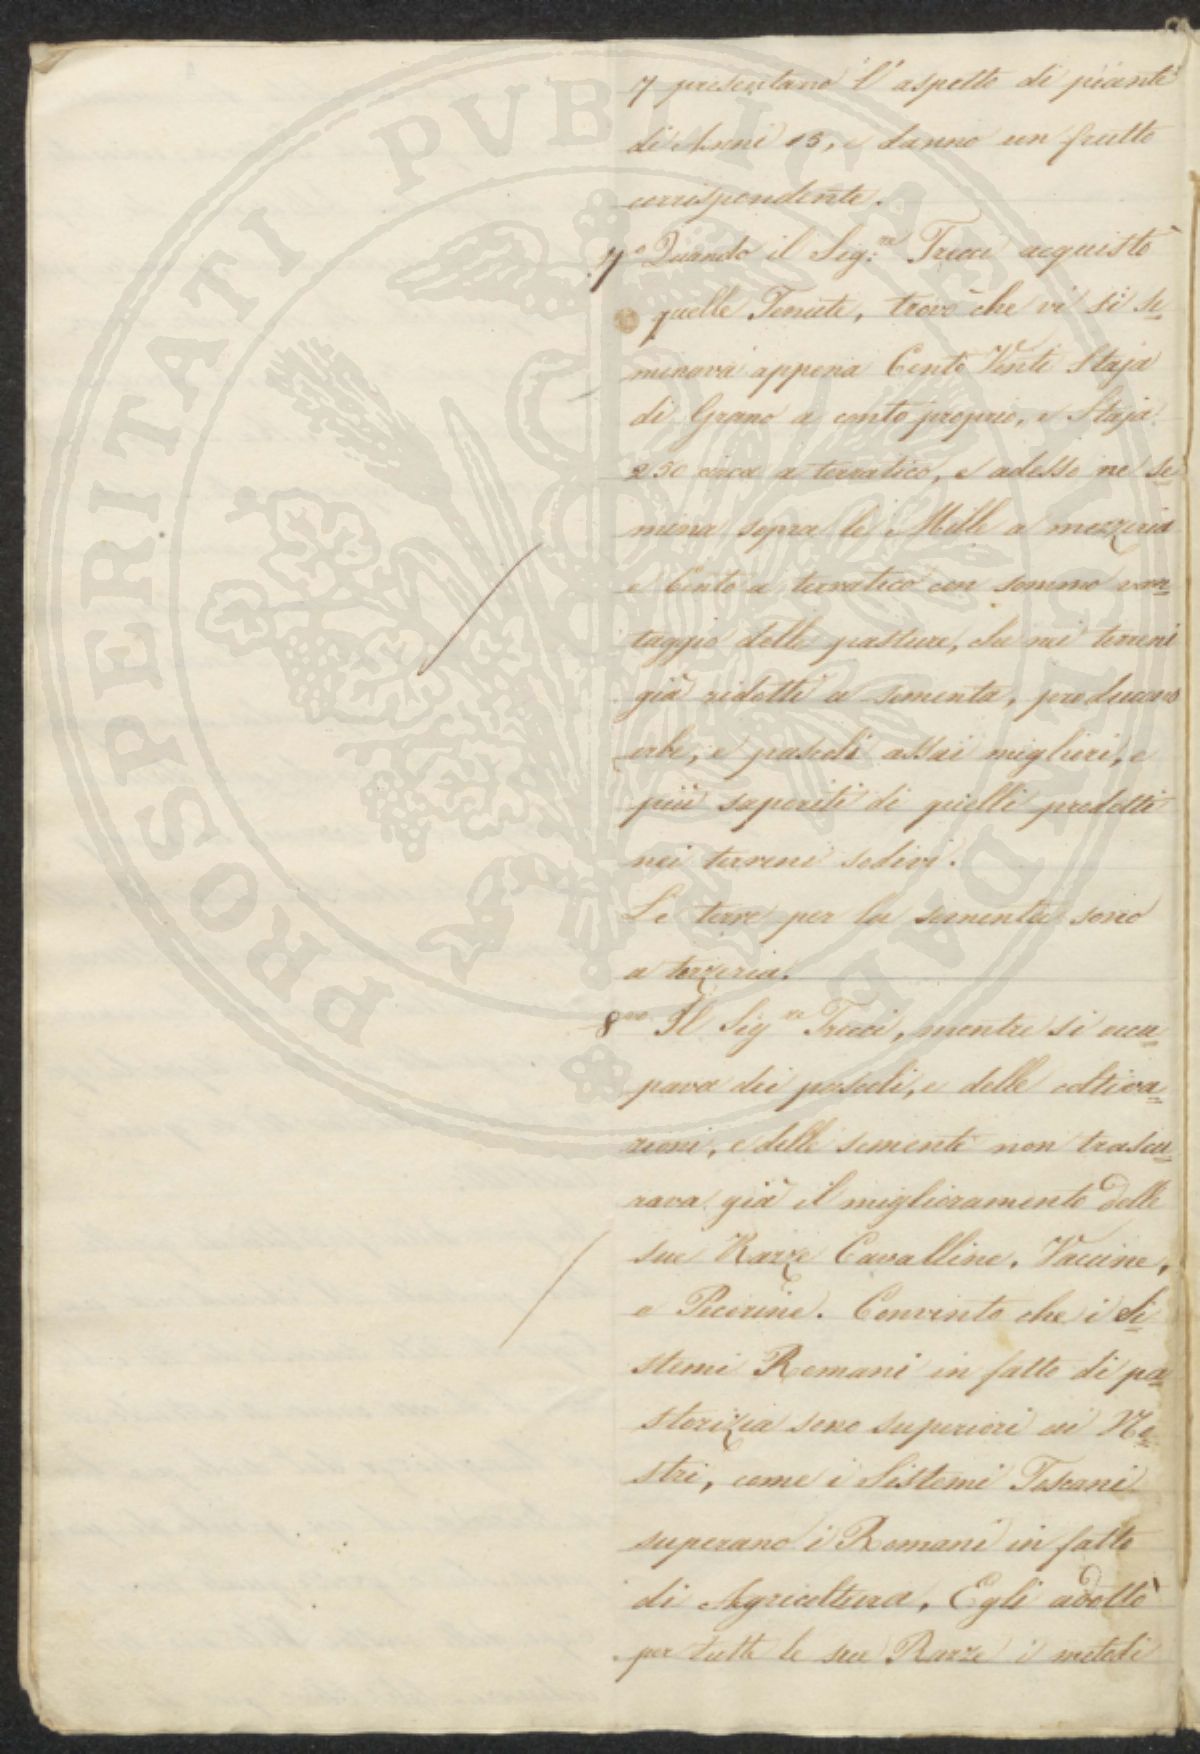 7 presentano l'aspetto di piante
di Anni 15, e danno un frutto
corrispondente.
7° Quando il Sig:re Tricci acquistò
quelle Tenute, trovò che vi si se=
minava appena Cento Venti Staja
di Grano a conto proprio, e Staja
250 circa a terratico, e adesso ne se=
mina sopra le Mille a mezzeria
e Cento a terratico con sommo van=
taggio delle pasture, che nei terreni
già ridotti a sementa, producono
erbe, e pascoli assai migliori, e
più saporiti di quelli prodotti
nei terreni sodivi.
Le terre per la sementa sono
a terzeria.
8vo Il Sigre Tricci, mentre si occu=
pava dei pascoli, e delle coltiva=
zioni, e delle sementi non trascu=
rava già il miglioramento delle
sue Razze Cavalline, Vaccine,
e Pecorine. Convinto che i Si=
stemi Romani in fatto di pa=
storizia sono superiori ai No=
stri, come i Sistemi Toscani
superano i Romani in fatto
di Agricoltura, Egli adottò
per tutte le sue Razze i metodi
PROSPERITATI PVBLICAE AVGENDAE